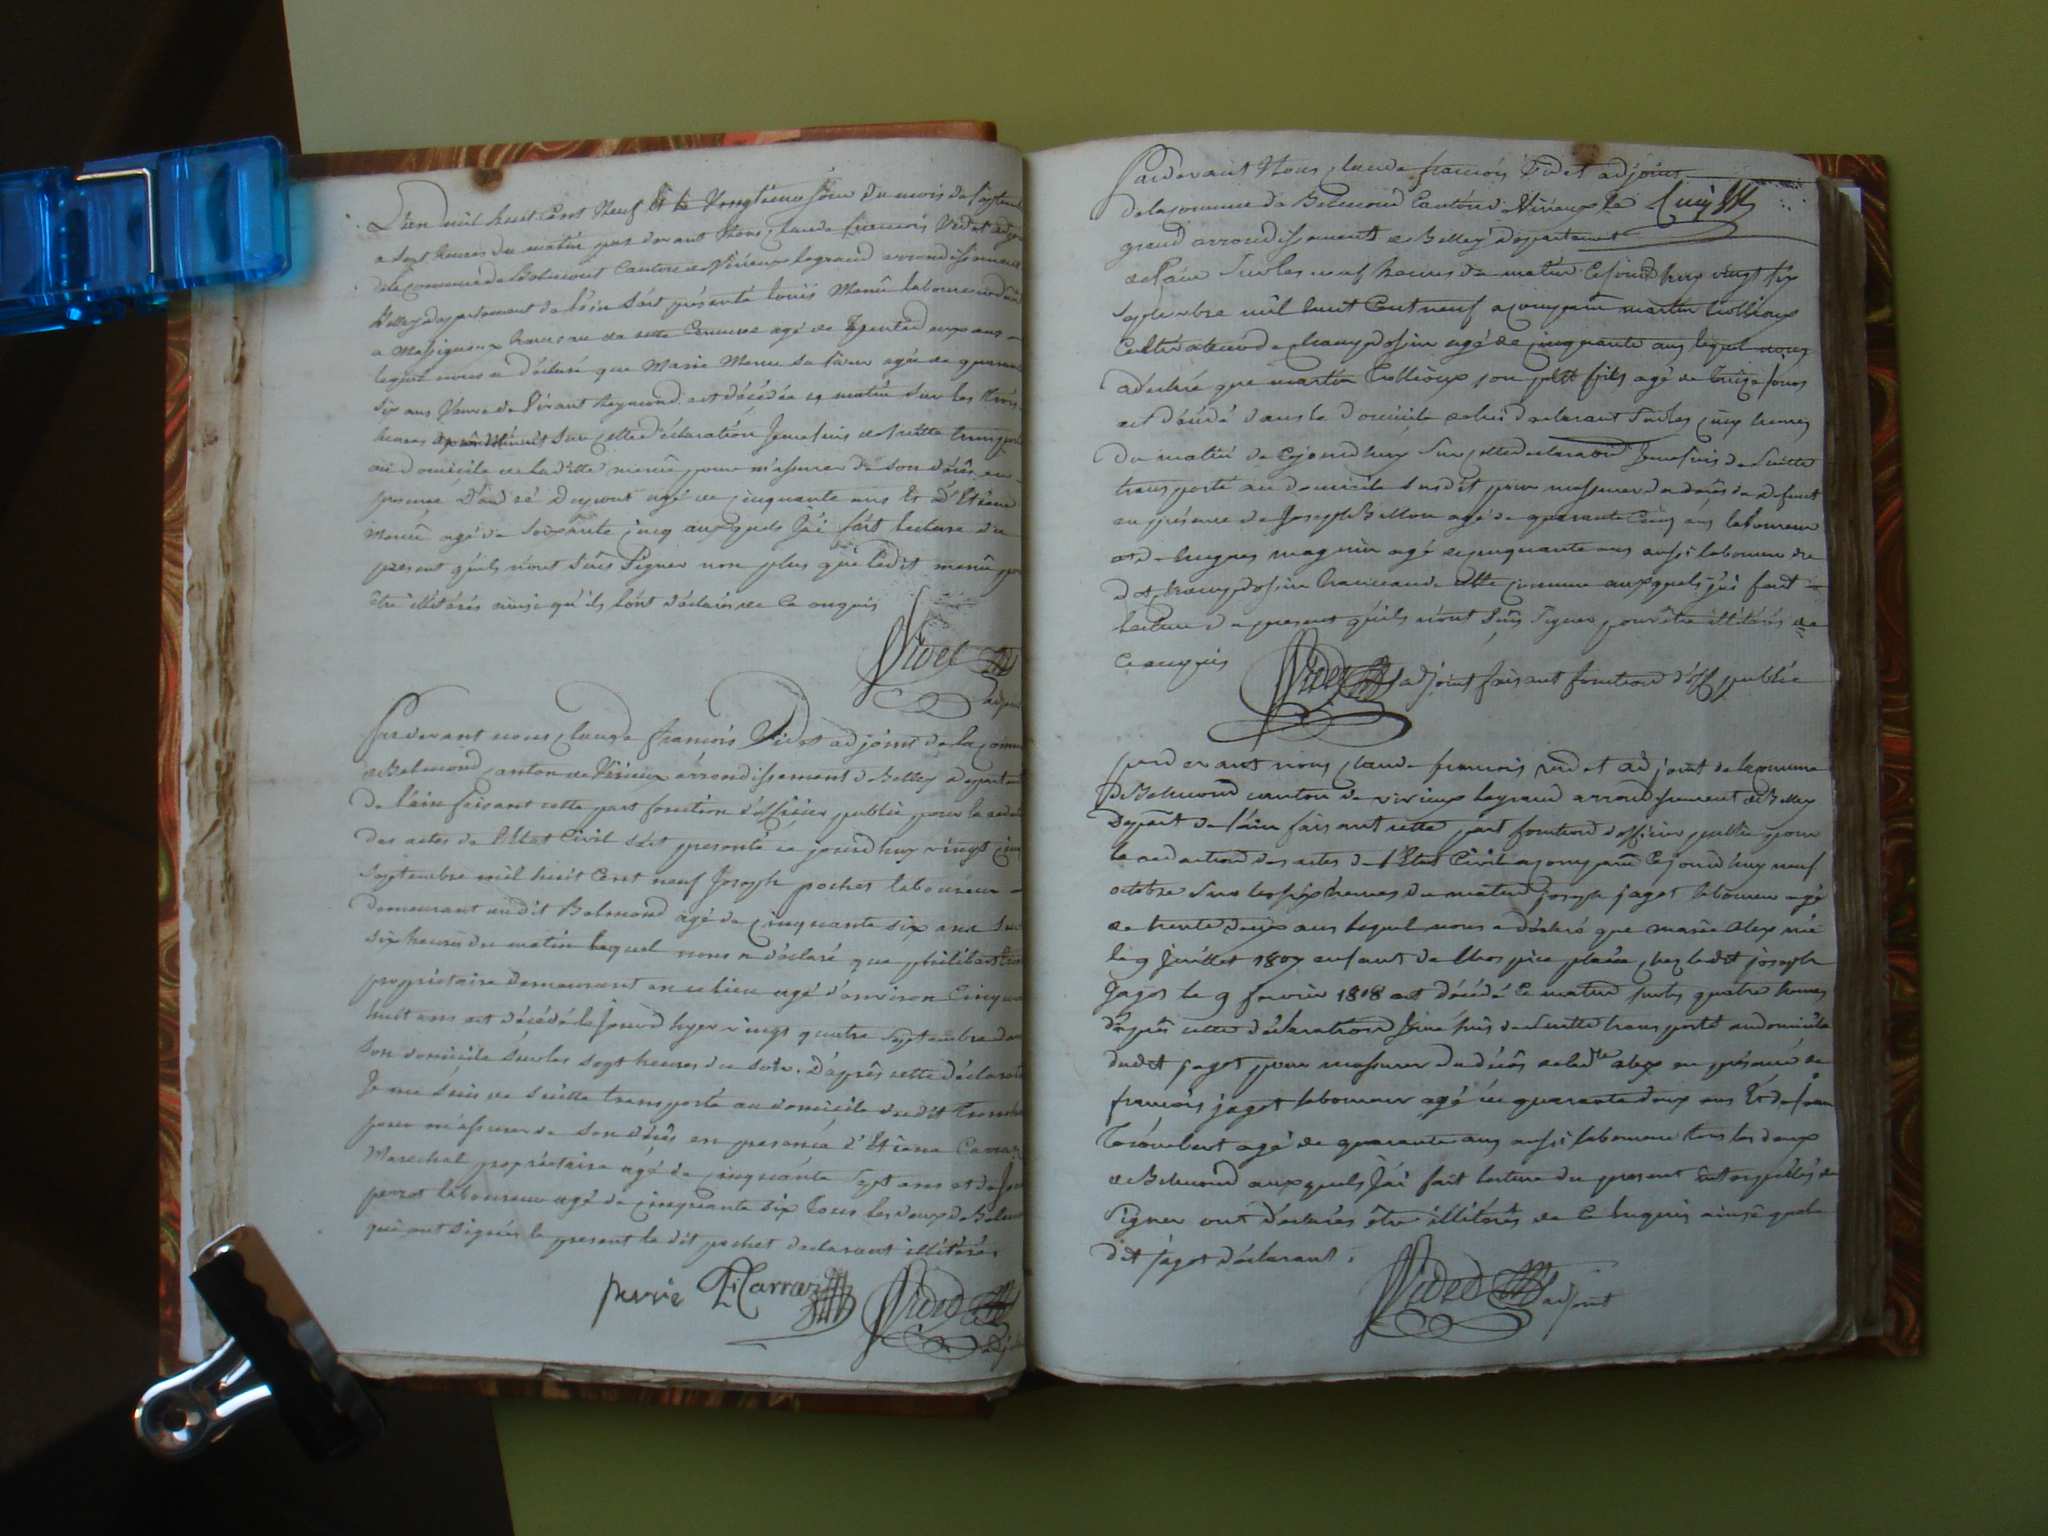 L'an mil huit Cent Neuf et le Vingtieme jour du mois de Septem
a sept heures du matin par devant Nous Claude francois Videt adjo
de la commune de Belmont Canton de Virieux le grand arrondissement
Belley departement de l'ain s'est présenté louis Menû laboureur de
a Massigneux hameau de cette Commune agé de trente deux ans
lequel nous a déclaré que Marie Menu sa sœur agée de quarante
six ans veuve de Vinant Reymond est décédée ce matin sur les trois
heures après Minuit sur cette déclaration Je me suis de suitte transporté
au domicile de la ditte menû pour m'assurer de son décès en
presence d'André Dupont agé de cinquante ans et d'Etiene
Menû agé de soixante cinq auxquels J'ai fait lecture du
present qu'ils n'ont sûs signer non plus que ledit menû po
être illitérés ainsi qu'ils l'ont déclarés de ce enquis
Videt
adjoint
Pardevant nous Claude francois Videt adjoint de la comm
de Belmond canton de Virieux arrondissement de Belley departement
de l'ain faisant cette part fonction d'officier public pour la redac
des actes de l'Etat Civil s'est presenté ce jourd'huy vingt cinq
Septembre mil huit Cent neuf Joseph pochet laboureur
demeurant audit Belmond agé de cinquante six ans sur
six heures du matin lequel nous a déclaré que philibert
propriétaire demeurant en ce lieu agé d'environ Cinqua
huit ans est décédé le Jourd'hyer vingt quatre Septembre dans
son domicile sur les sept heures du soir. D'après cette déclarati
Je me suis de suitte transporté au domicile du dit
pour m'assurer de son décès en presence d'Etiene Carraz
Marechal propriétaire agé de cinquante sept ans et de
perret laboureur agé de cinquante six tous les deux de Belmo
qui ont signés le present le dit pochet declarant illitérés
perré Carraz Videt
adjoint
Pardevant Nous Claude francois Videt adjoint
de la commune de Belmond Canton de Virieux le
grand arrondissement de Belley departement
de l'ain sur les neuf heures du matin Cejourd'huy vingt six
septembre mil huit Cent neuf a comparu martin trollioux
Cultivateur de champdossin agé de cinquante ans lequel nous
a déclaré que martin Trollioux son petit fils agé de treize jours
est décédé dans le domicile de lui declarant sur les cinq heures
du matin de Cejourd'huy sur cette declaration Je me suis de suitte
transporté au domicile susdit pour m'assurer du décès du defunt
en présence de Joseph Billon agé de quarante cinq ans laboureur
et de hugues magnin agé de cinquante ans aussi laboureur de
dot champdossin hameau de cette commune auxquels j'ai fait
lecture du present qu'ils n'ont sûs signer pour être illitérés de
ce enquis
Videt adjoint faisant fonction d'off. public
pardevant nous Claude francois videt adjoint de la commune
de Belmond canton de virieux le grand arrondissement de Belley
Depart. de l'ain faisant cette part fonction d'officier public pour
la redaction des actes de l'Etat Civil a comparu Cejourd'huy neuf
octobre sur les six heures du matin joseph jagot laboureur agé
de trente deux ans lequel nous a déclaré que marie Alex née
le 9 Juillet 1807 enfant de l'hospice placée chez ledit joseph
Jagot le 9 fevrier 1808 est décédé ce matin sur les quatre heures
d'après cette déclaration Je me suis de suitte transporté au domicile
dudit jagot pour m'assurer du décès de ladte alex en présence de
francois jagot laboureur agé de quarante deux ans Et de Jean
agé de quarante ans aussi laboureur tous les deux
de Belmond auxquels J'ai fait lecture du present Interpellés de
signer ont déclarés être illitérés de ce Enquis ainsi que le
dit jagot déclarant.
Videt adjoint